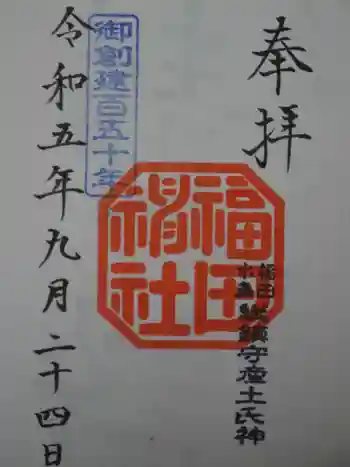 奉拝
福田
社
福田
水島
鎮守産土氏神
御創建百五十年
令和五年九月二十四日